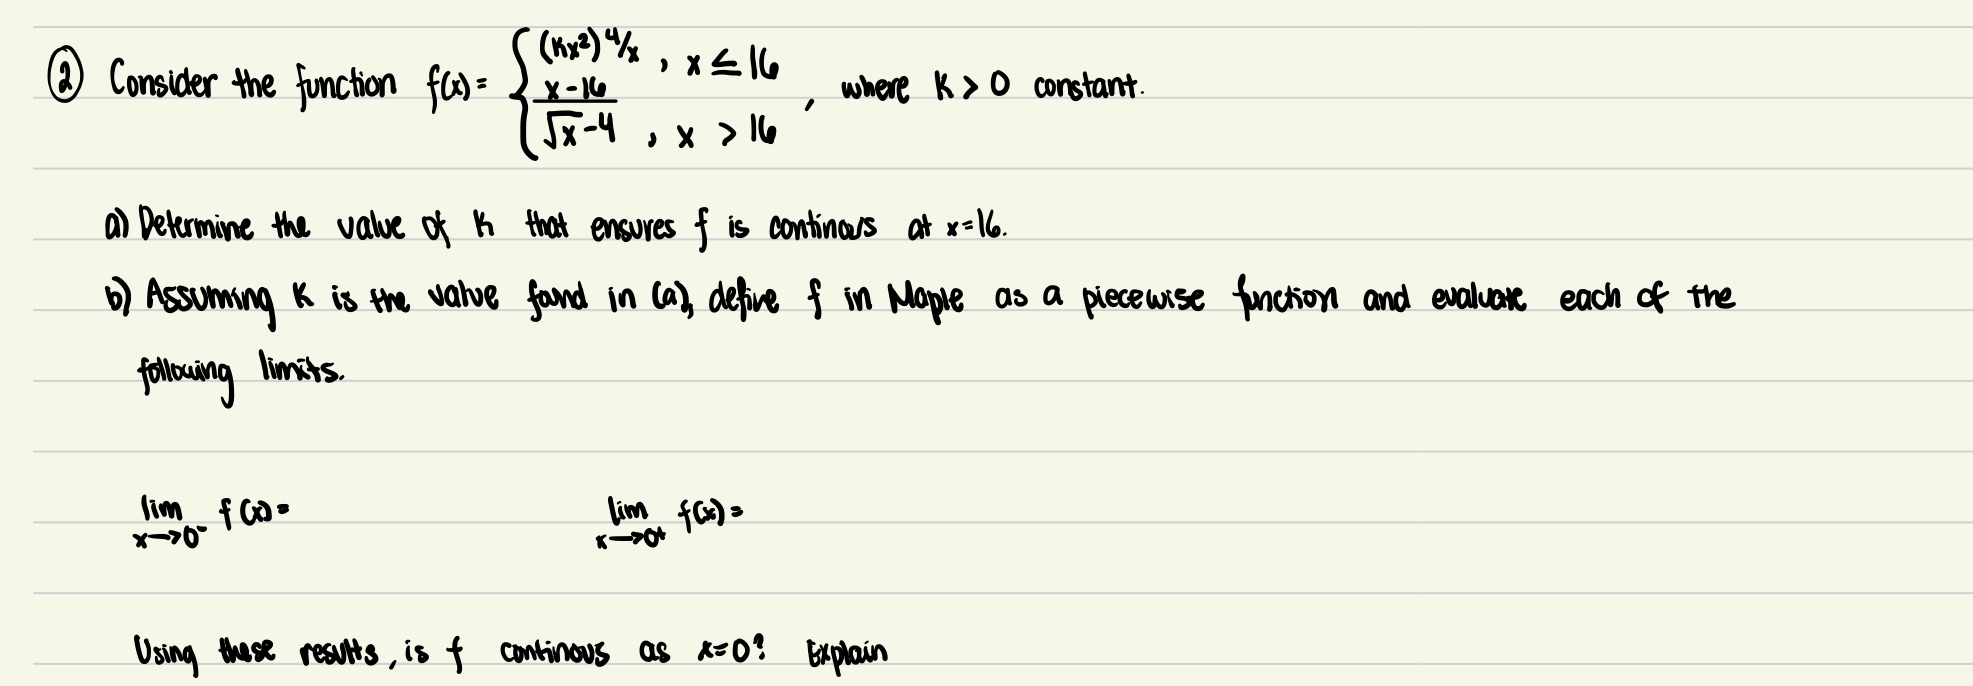 ② Consider the function f(x) = { (kx²)^4/x , x ≤ 16
x-16/√x-4 , x > 16 , where k > 0 constant.
a) Determine the value of k that ensures f is continous at x=16.
b) Assuming k is the value found in (a), define f in Maple as a piecewise function and evaluate each of the
following limits.
lim x→0⁻ f(x) = lim x→0⁺ f(x) =
Using these results, is f continous as x=0? Explain